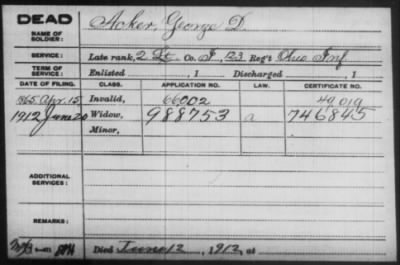 DEAD
NAME OF SOLDIER: Acker, George D.
SERVICE: Late rank, 2 Lt. Co. I, 123 Reg't Ohio Inf
TERM OF SERVICE: Enlisted , 1 Discharged , 1
DATE OF FILING. CLASS. APPLICATION NO. LAW. CERTIFICATE NO.
1865 Apr. 15 Invalid, 66002 49,019
1912 June 20 Widow, 988753 a 746845
Minor,
ADDITIONAL SERVICES:
REMARKS:
Died June 12, 1912, at